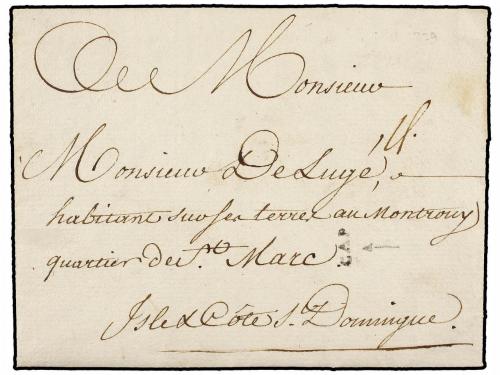 A Monsieur
Monsieur De Lugé,
habitant sur ses terres au Montrouy
quartier de St. Marc
CAP
Isle & Côte St. Domingue.